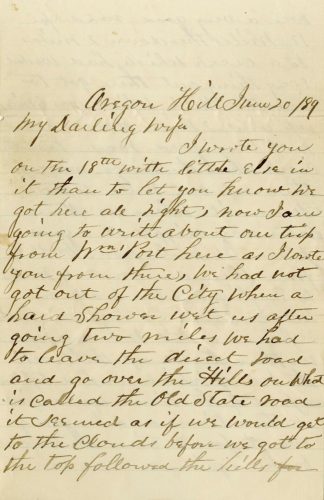 Oregon Hill June 20/89
My Darling Wife
I wrote you
on the 18th with little else in
it than to let you know we
got here all right, now I am
going to write about our trip
from Wmsport here as I wrote
you from there, we had not
got out of the City when a
hard shower wet us after
going two miles we had
to leave the direct road
and go over the Hills on what
is called the Old State road
it seemed as if we would get
to the Clouds before we got to
the top followed the hills for